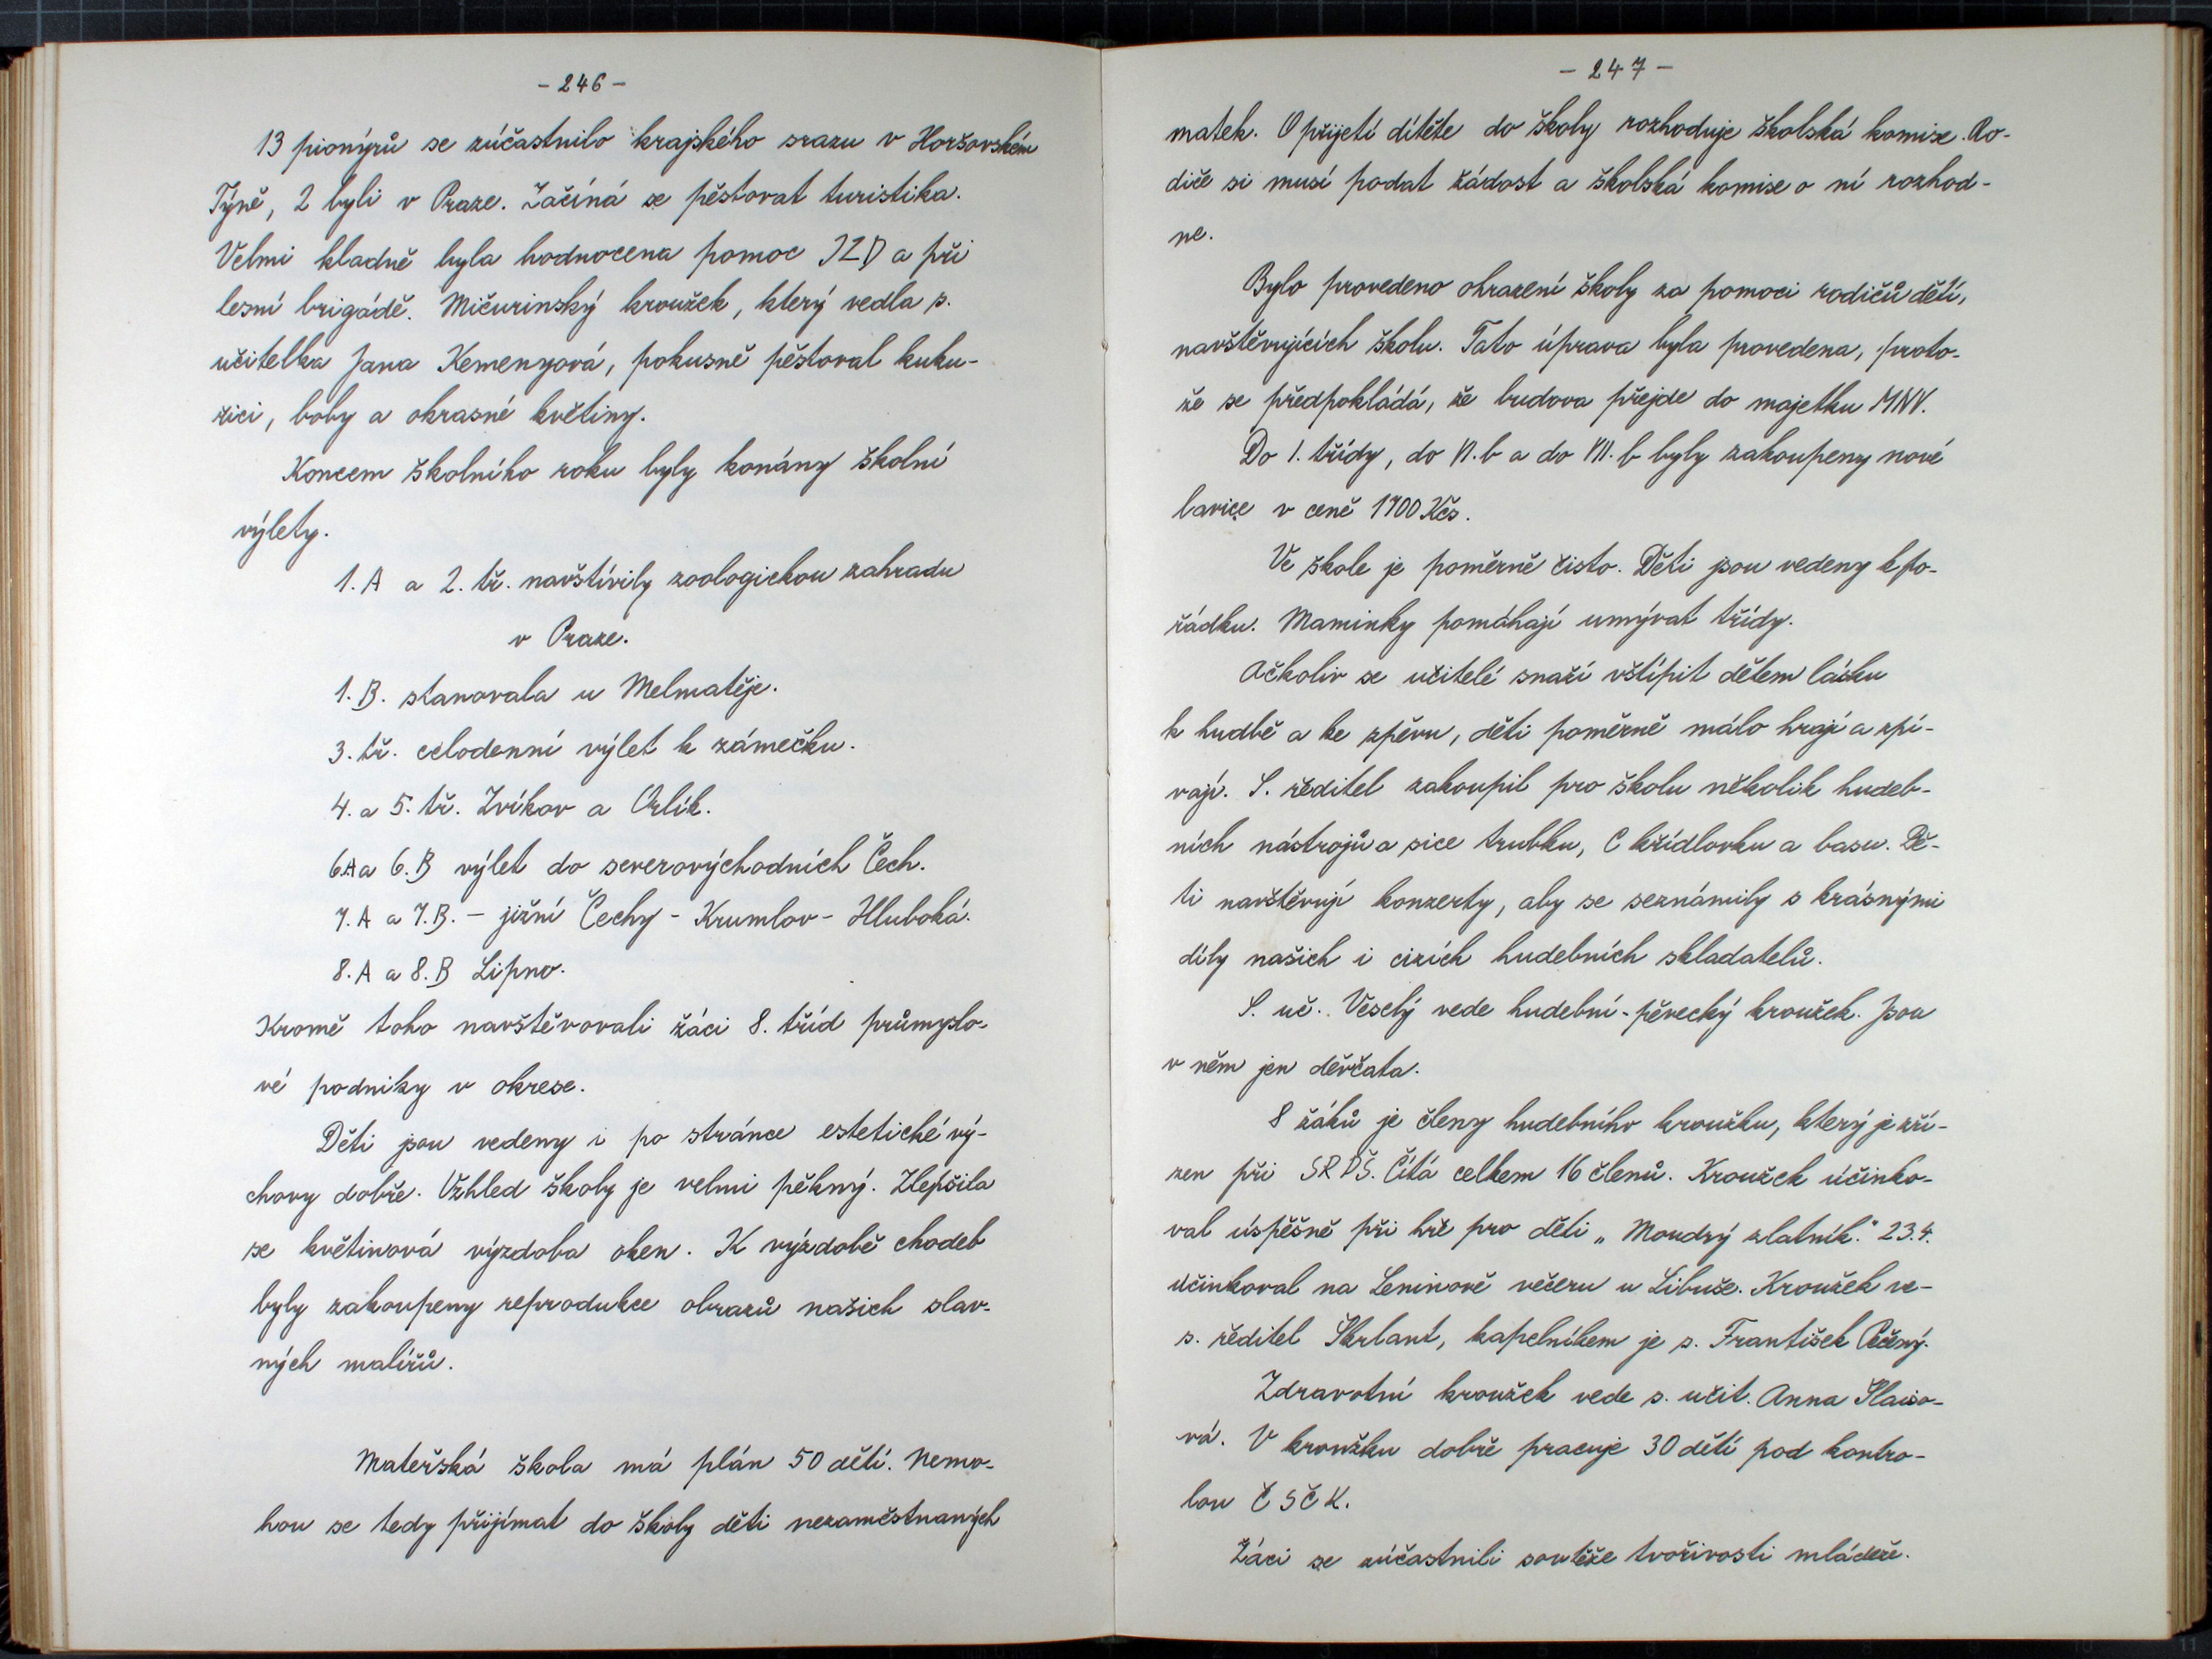 - 246 -
13 pionýrů se zúčastnilo krajského srazu v Horšovském
Týně, 2 byli v Praze. Začíná se pěstovat turistika.
Velmi kladně byla hodnocena pomoc JZD a při
lesní brigádě. Mičurinský kroužek, který vedla s.
učitelka Jana Kemenyová, pokusně pěstoval kuku-
řici, boby a okrasné květiny.
Koncem školního roku byly konány školní
výlety.
1. A a 2. tř. navštívily zoologickou zahradu
v Praze.
1. B. stanovala u Melmatěje.
3. tř. celodenní výlet k zámečku.
4. a 5. tř. Zvíkov a Orlík.
6.A a 6. B výlet do severovýchodních Čech.
7. A a 7. B. - jižní Čechy - Krumlov - Hluboká.
8. A a 8. B Lipno.
Kromě toho navštěvovali žáci 8. tříd průmyslo-
vé podniky v okrese.
Děti jsou vedeny i po stránce estetické vý-
chovy dobře. Vzhled školy je velmi pěkný. Zlepšila
se květinová výzdoba oken. K výzdobě chodeb
byly zakoupeny reprodukce obrazů našich slav-
ných malířů.
Mateřská škola má plán 50 dětí. Nemo-
hou se tedy přijímat do školy děti nezaměstnaných
- 247 -
matek. O přijetí dítěte do školy rozhoduje školská komise. Ro-
diče si musí podat žádost a školská komise o ní rozhod-
ne.
Bylo provedeno ohrazení školy za pomoci rodičů dětí,
navštěvujících školu. Tato úprava byla provedena, proto-
že se předpokládá, že budova přejde do majetku MNV.
Do 1. třídy, do VI. b a do VIII. b byly zakoupeny nové
lavice v ceně 1700 Kčs.
Ve škole je poměrně čisto. Děti jsou vedeny k po-
řádku. Maminky pomáhají umývat třídy.
Ačkoliv se učitelé snaží vštípit dětem lásku
k hudbě a ke zpěvu, děti poměrně málo hrají a zpí-
vají. S. ředitel zakoupil pro školu několik hudeb-
ních nástrojů a sice trubku, C křídlovku a basu. Dě-
ti navštěvují konzerty, aby se seznámily s krásnými
díly našich i cizích hudebních skladatelů.
S. uč. Veselý vede hudební - pěvecký kroužek. Jsou
v něm jen děvčata.
8 žáků je členy hudebního kroužku, který je zří-
zen při SRPŠ. Čítá celkem 16 členů. Kroužek účinko-
val úspěšně při hře pro děti „Moudrý zlatník." 23.4.
účinkoval na Leninově večeru u Libuše. Kroužek ve-
s. ředitel Škrlant, kapelníkem je s. František
Zdravotní kroužek vede s. učit. Anna
vá. V kroužku dobře pracuje 30 dětí pod kontro-
lou ČSČK.
Žáci se zúčastnili soutěže tvořivosti mládeže.